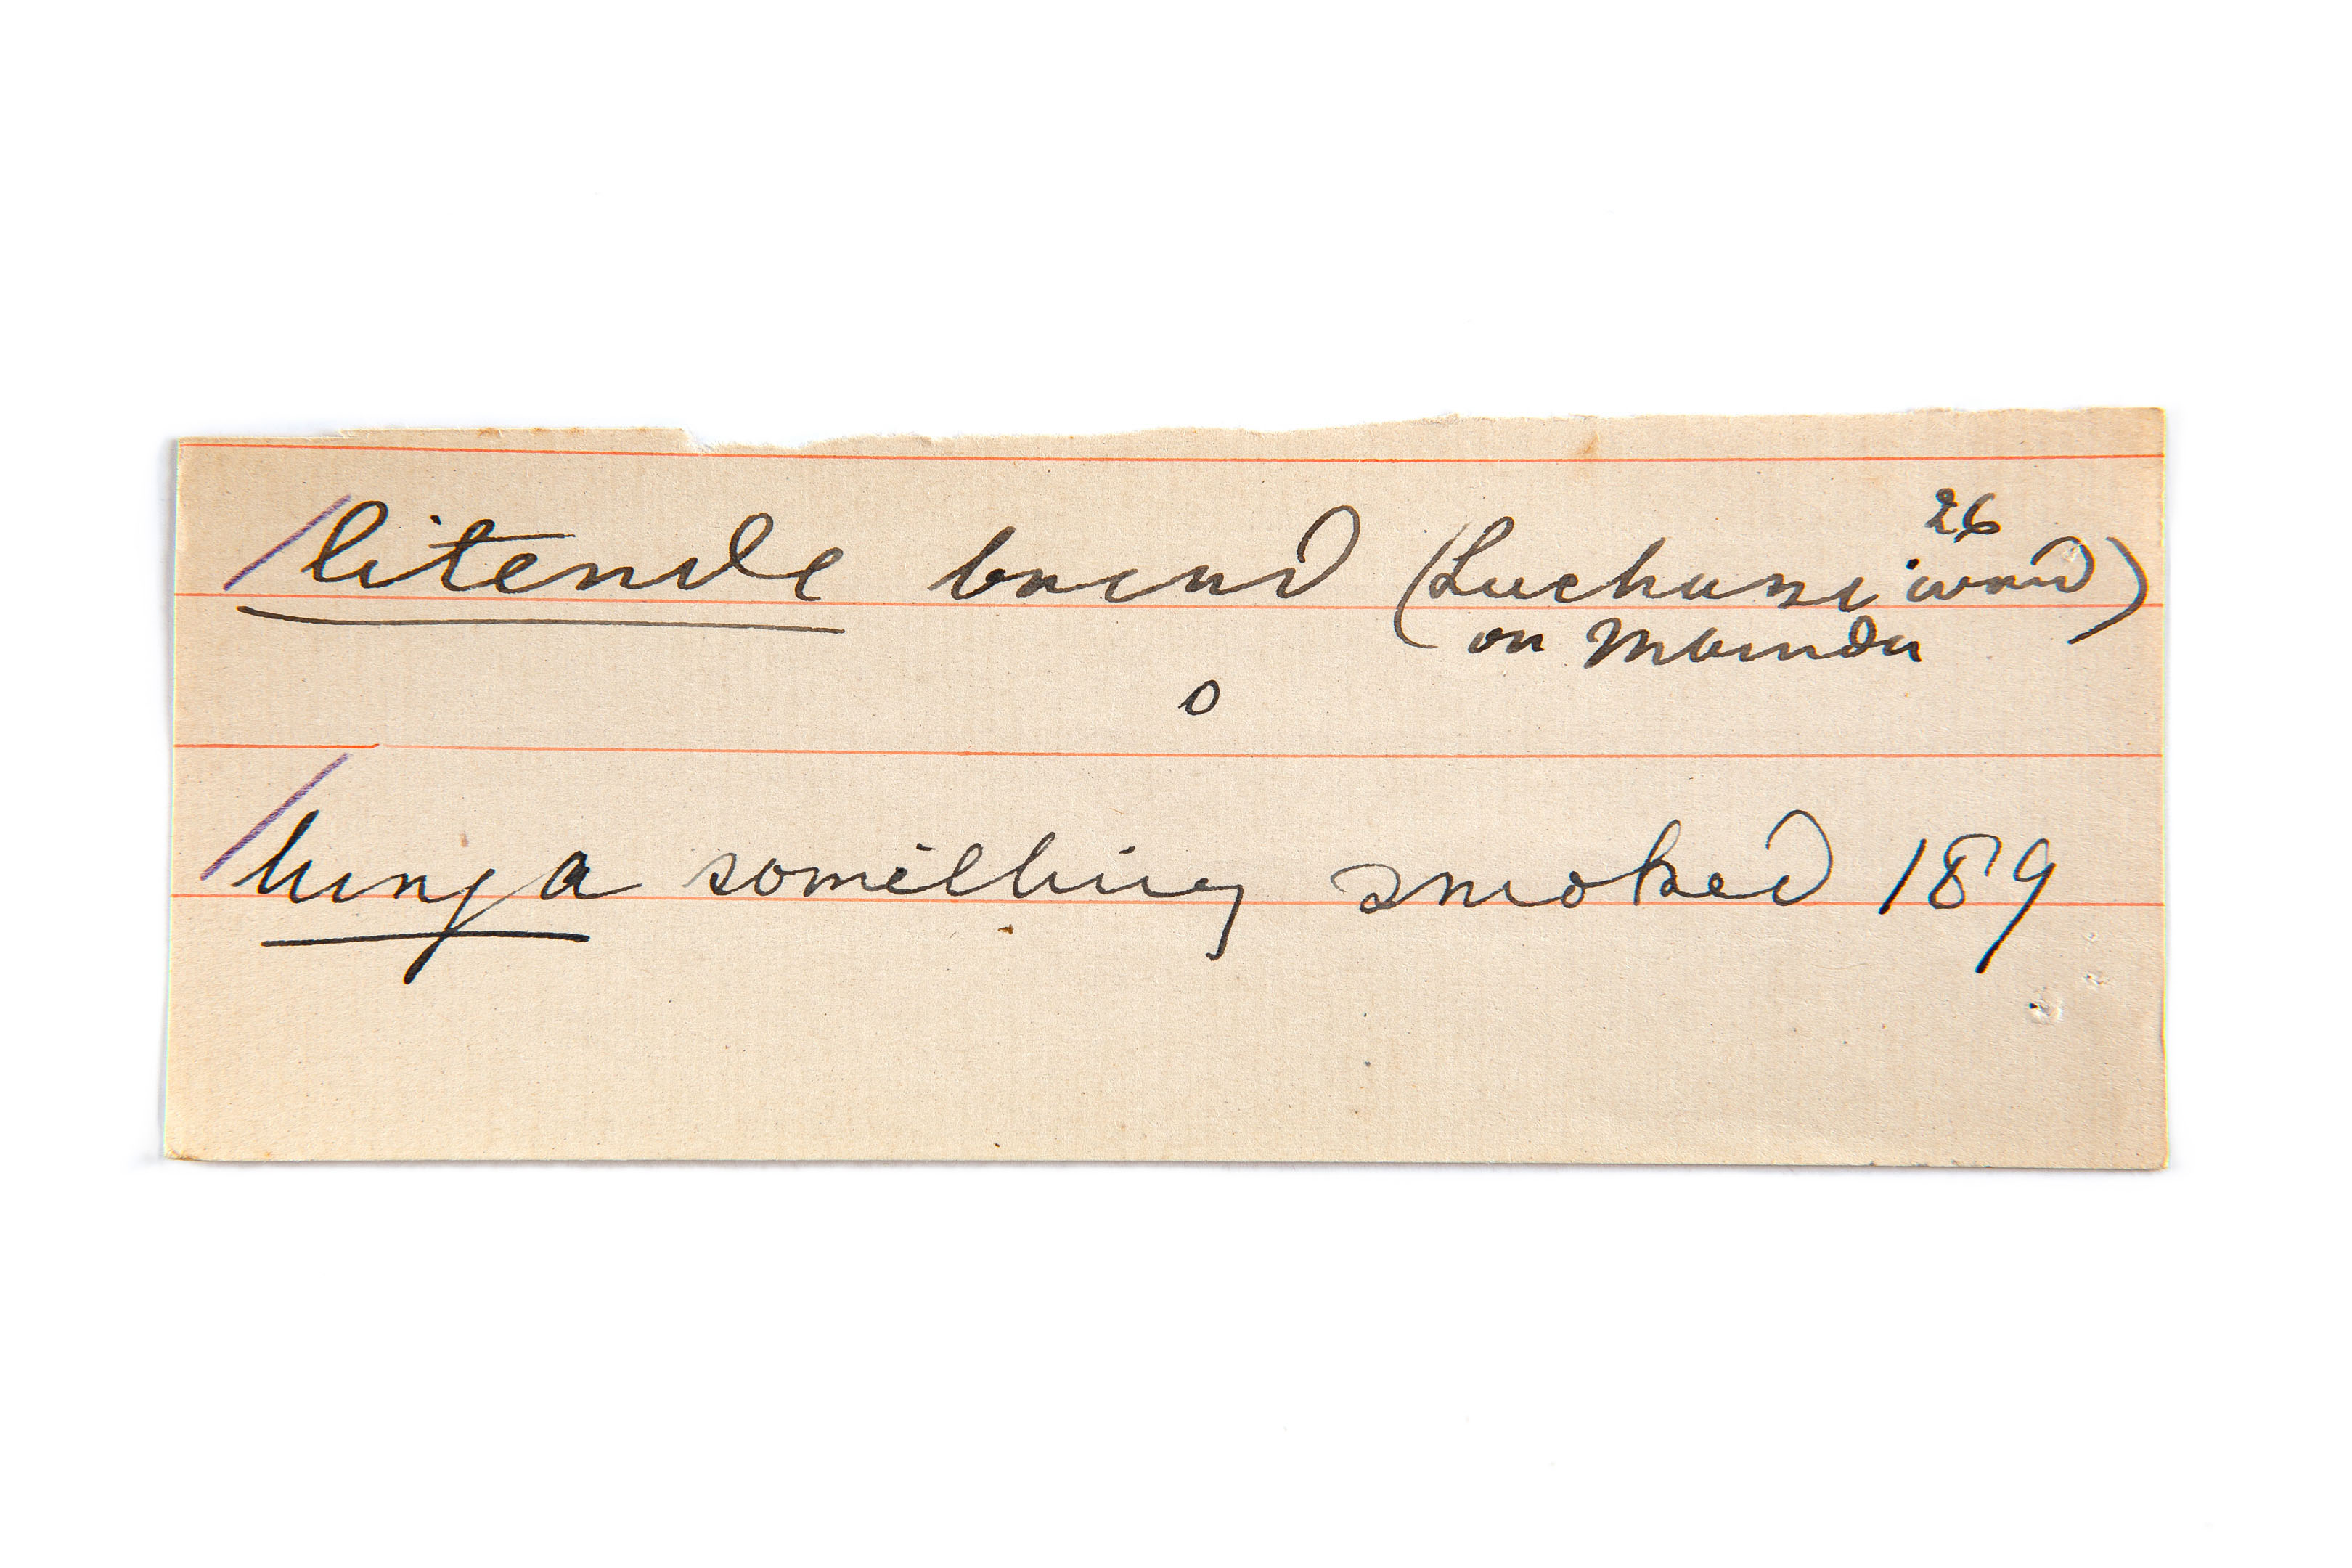 litende (Luchazi word) 26
or Mbunda
o
hunga something smoked 189